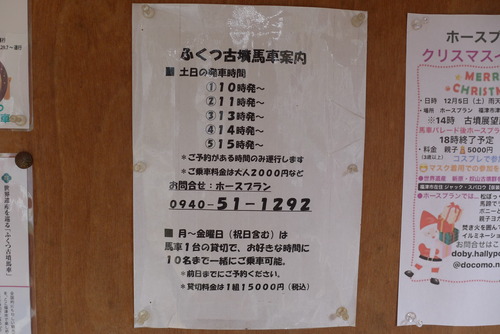 ふくつ古墳馬車案内
■ 土日の発車時間
①10時発～
②11時発～
③13時発～
④14時発～
⑤15時発～
＊ご予約がある時間のみ運行します
＊ご乗車料金は大人2000円など
お問合せ：ホースプラン
0940-51-1292
■ 月～金曜日（祝日含む）は
馬車１台の貸切で、お好きな時間に
１０名まで一緒にご乗車可能。
＊前日までにご予約ください。
＊貸切料金は１組15000円（税込）
ホースプ
クリスマスイ
MERR
CHRISTM
・日時 12月5日（土）雨天
・場所 ホースプラン 福津市津
※14時 古墳展望
馬車パレード後ホースプ
18時終了予定
・料金 親子 5000円
（3歳以上） コスプレで参
マスク着用での参加を
世界遺産
・ホースプランでは
松ぼっ
馬蹄で
ポニー
焚き火を囲んで
イルミネーショ
お問合せはこ
doby.hallypo
@docomo.n
世界遺産を巡る「ふくつ古墳馬車」